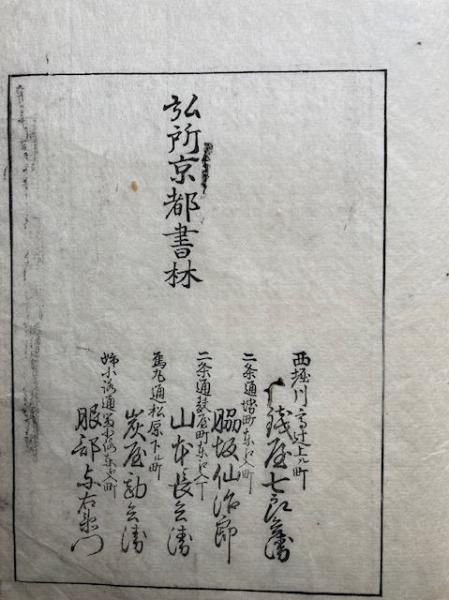 弘所京都書林
西堀川高辻上ル町
銭屋七郎兵衛
二条通堺町東江入町
脇坂仙治郎
二条通麸屋町東江入丁
山本長兵衛
烏丸通松原下ル町
炭屋勘兵衛
姉小路通東江入町
服部与右衛門